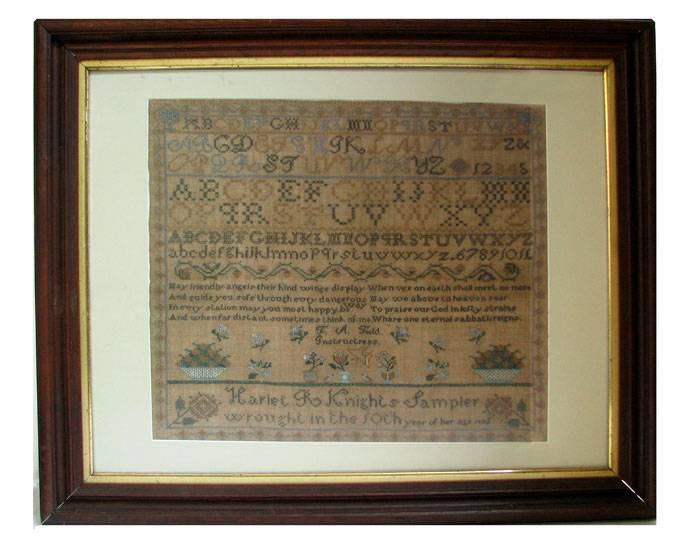 ABCDEFGHIJKLMNOPQRSTUVW
ABCDEFGHIJKLMN XYZ&
OPQRSTUVWXYZ 12345
ABCDEFGHIJLM
OPQRSTUVXYZ
ABCDEFGHIJKLMNOPQRSTUVWXYZ
abcdefghijklmnopqrstuvwxyz. 67891011
May friendly angels their kind wings display When we on earth shall meet no more
And guide you safe through every dangerous way May we above to heaven soar
In every station may you most happy be To praise our God in lofty strains
And when far distant sometimes think of me. Where one eternal sabbath reigns.
F. A. Field
Instructress.
Hariet R Knights Sampler
wrought in the 10th year of her age